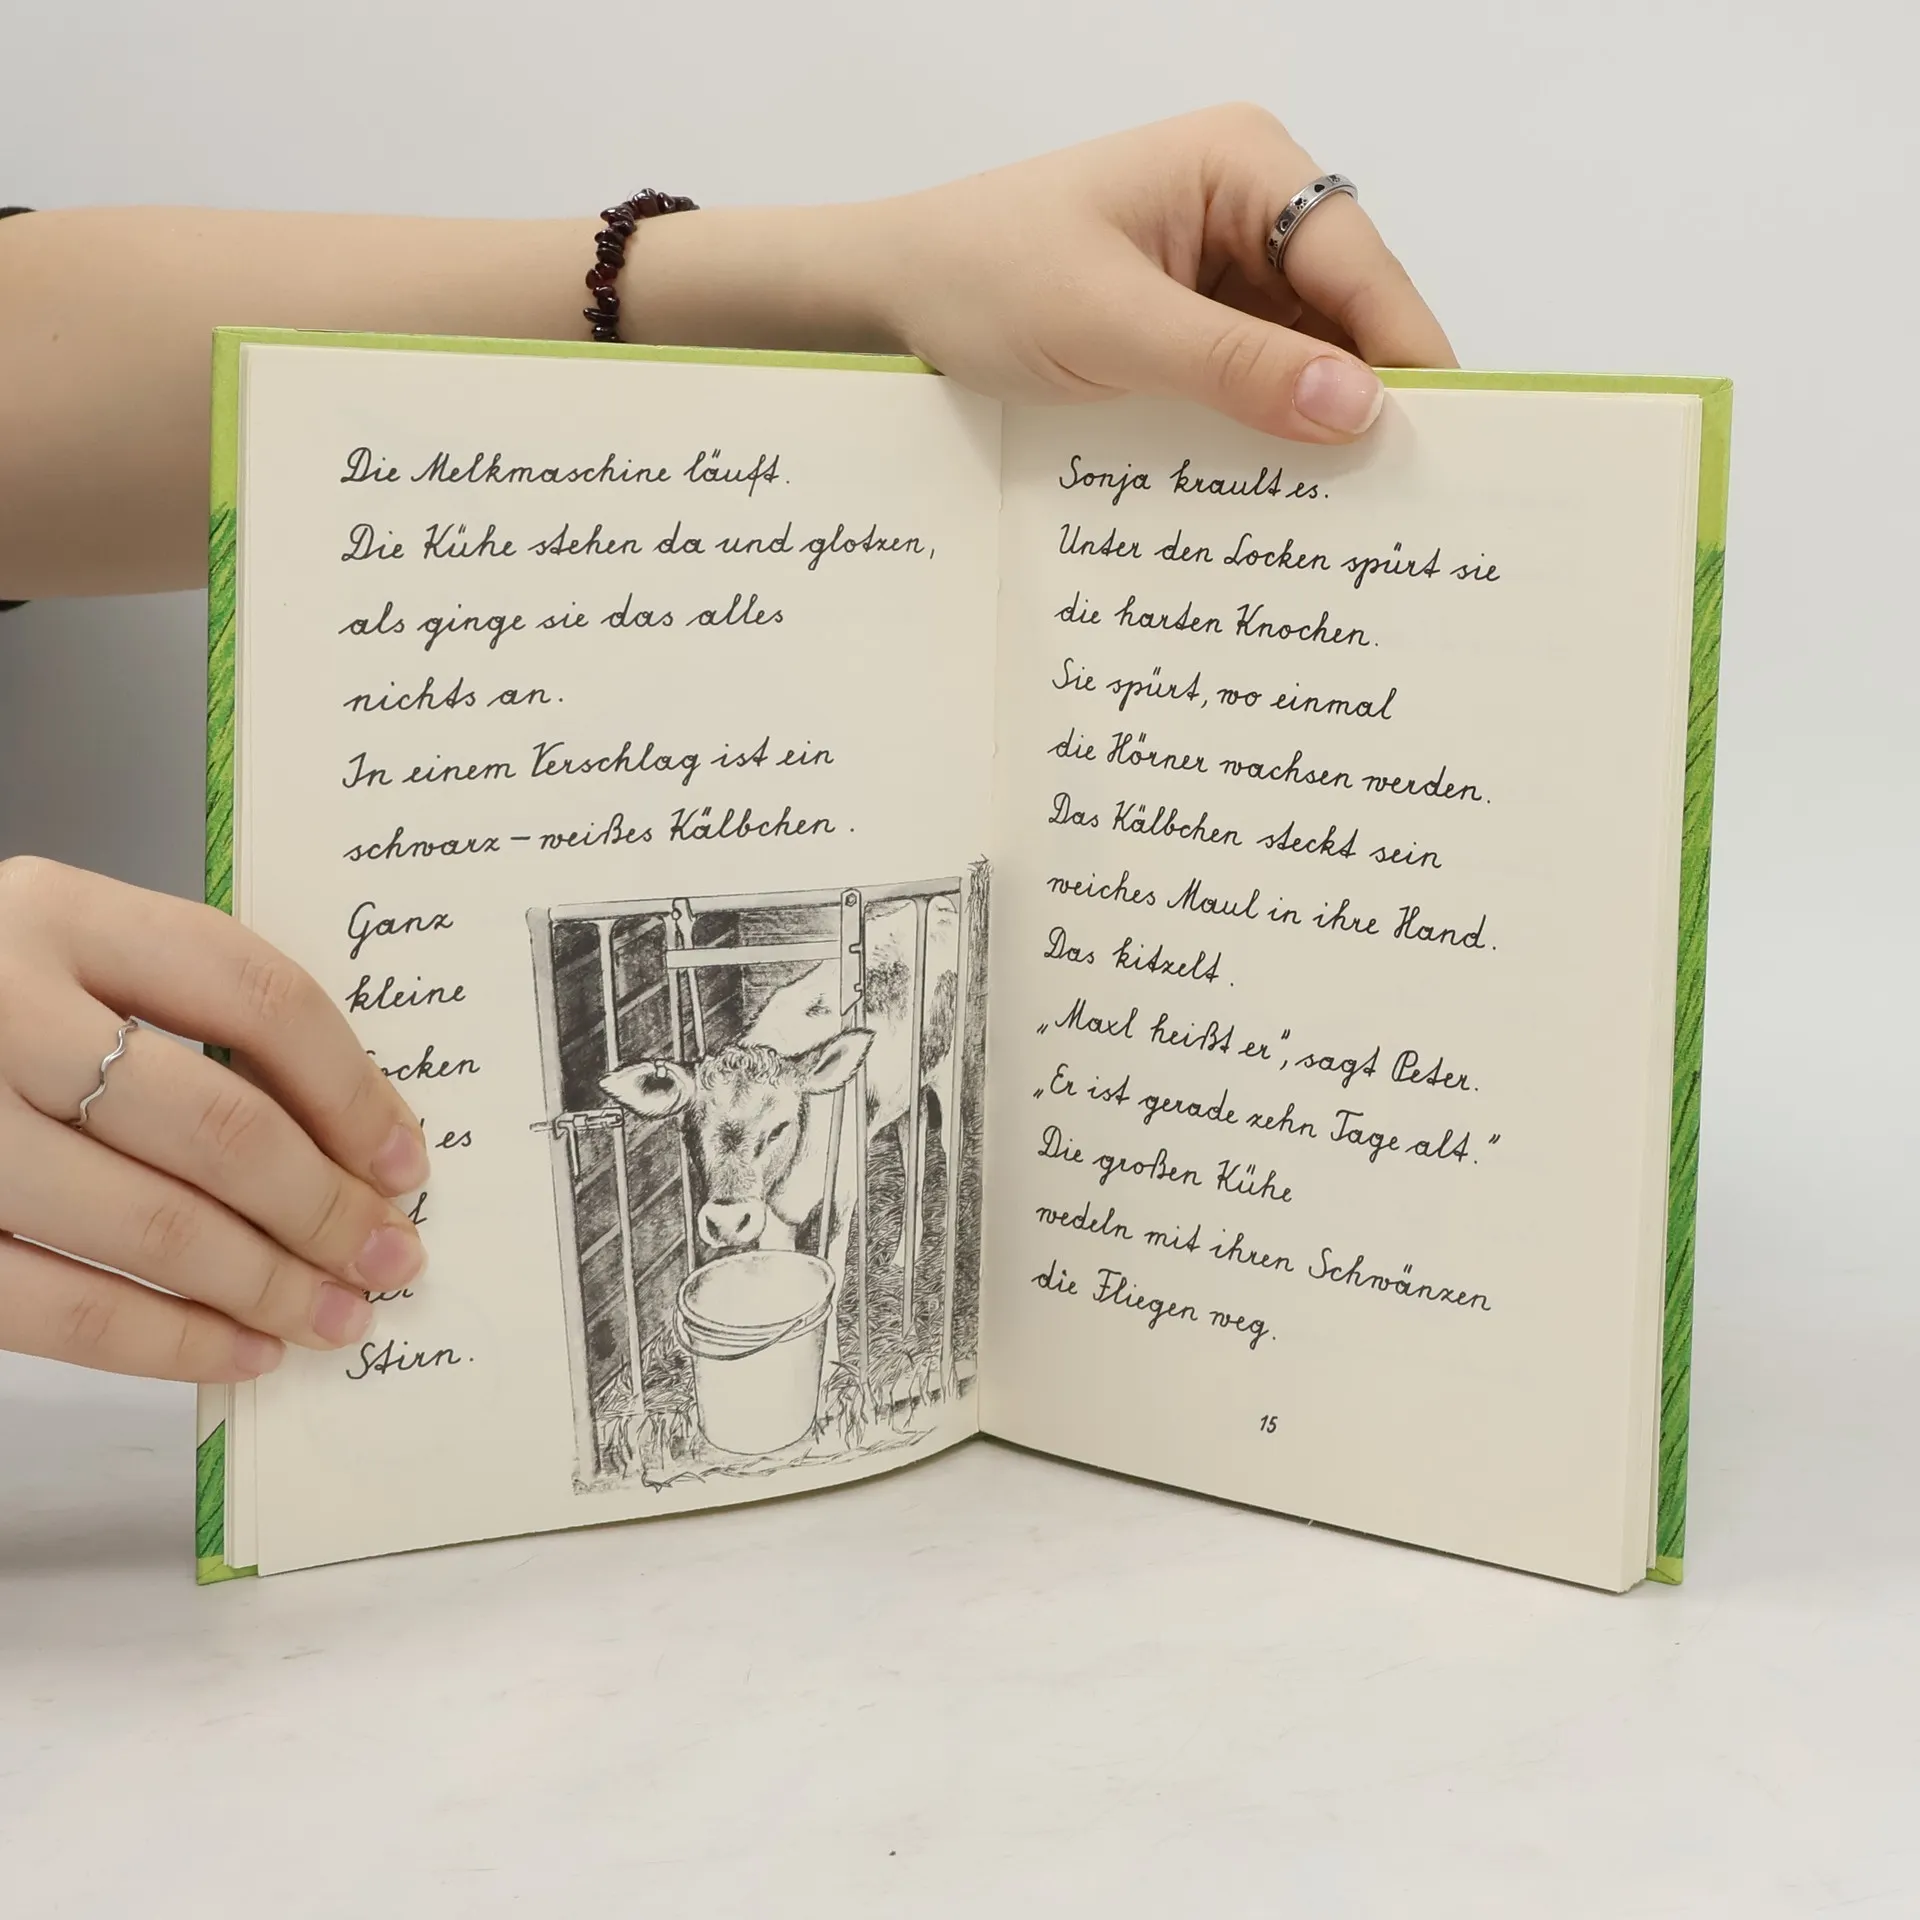 Die Melkmaschine läuft.
Die Kühe stehen da und glotzen,
als ginge sie das alles
nichts an.
In einem Verschlag ist ein
schwarz-weißes Kälbchen.
Ganz
kleine
es
Stirn.
Sonja krault es.
Unter den Locken spürt sie
die harten Knochen.
Sie spürt, wo einmal
die Hörner wachsen werden.
Das Kälbchen steckt sein
weiches Maul in ihre Hand.
Das kitzelt.
„Maxl heißt er", sagt Peter.
„Er ist gerade zehn Tage alt."
Die großen Kühe
wedeln mit ihren Schwänzen
die Fliegen weg.
15